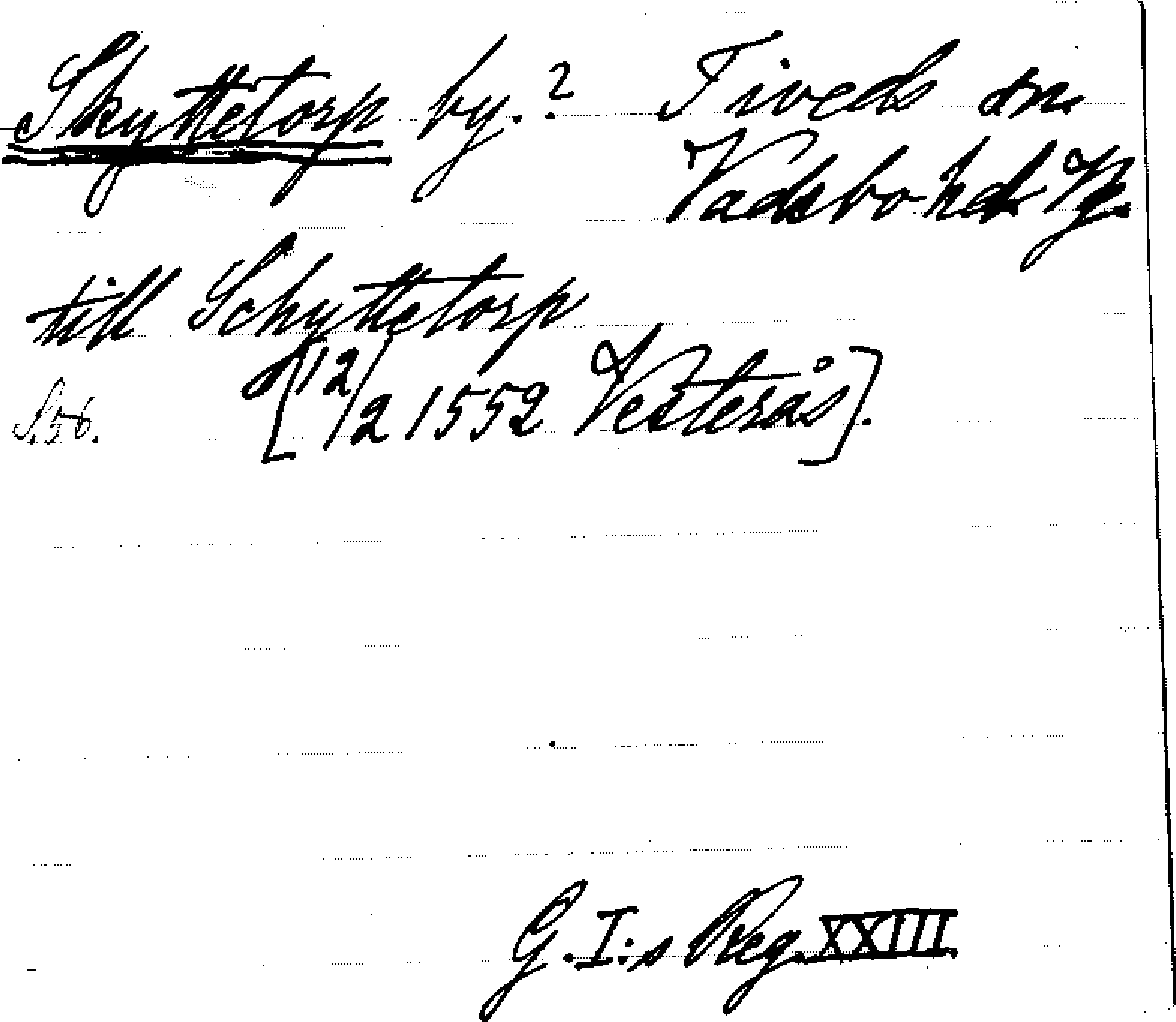 Skyttetorp by.? Tiveds sn.
Vadsbo hd Vg.
till Schyttetorp
S. 56. [12/2 1552 Vesterås].
G. I:s Reg. XXIII.